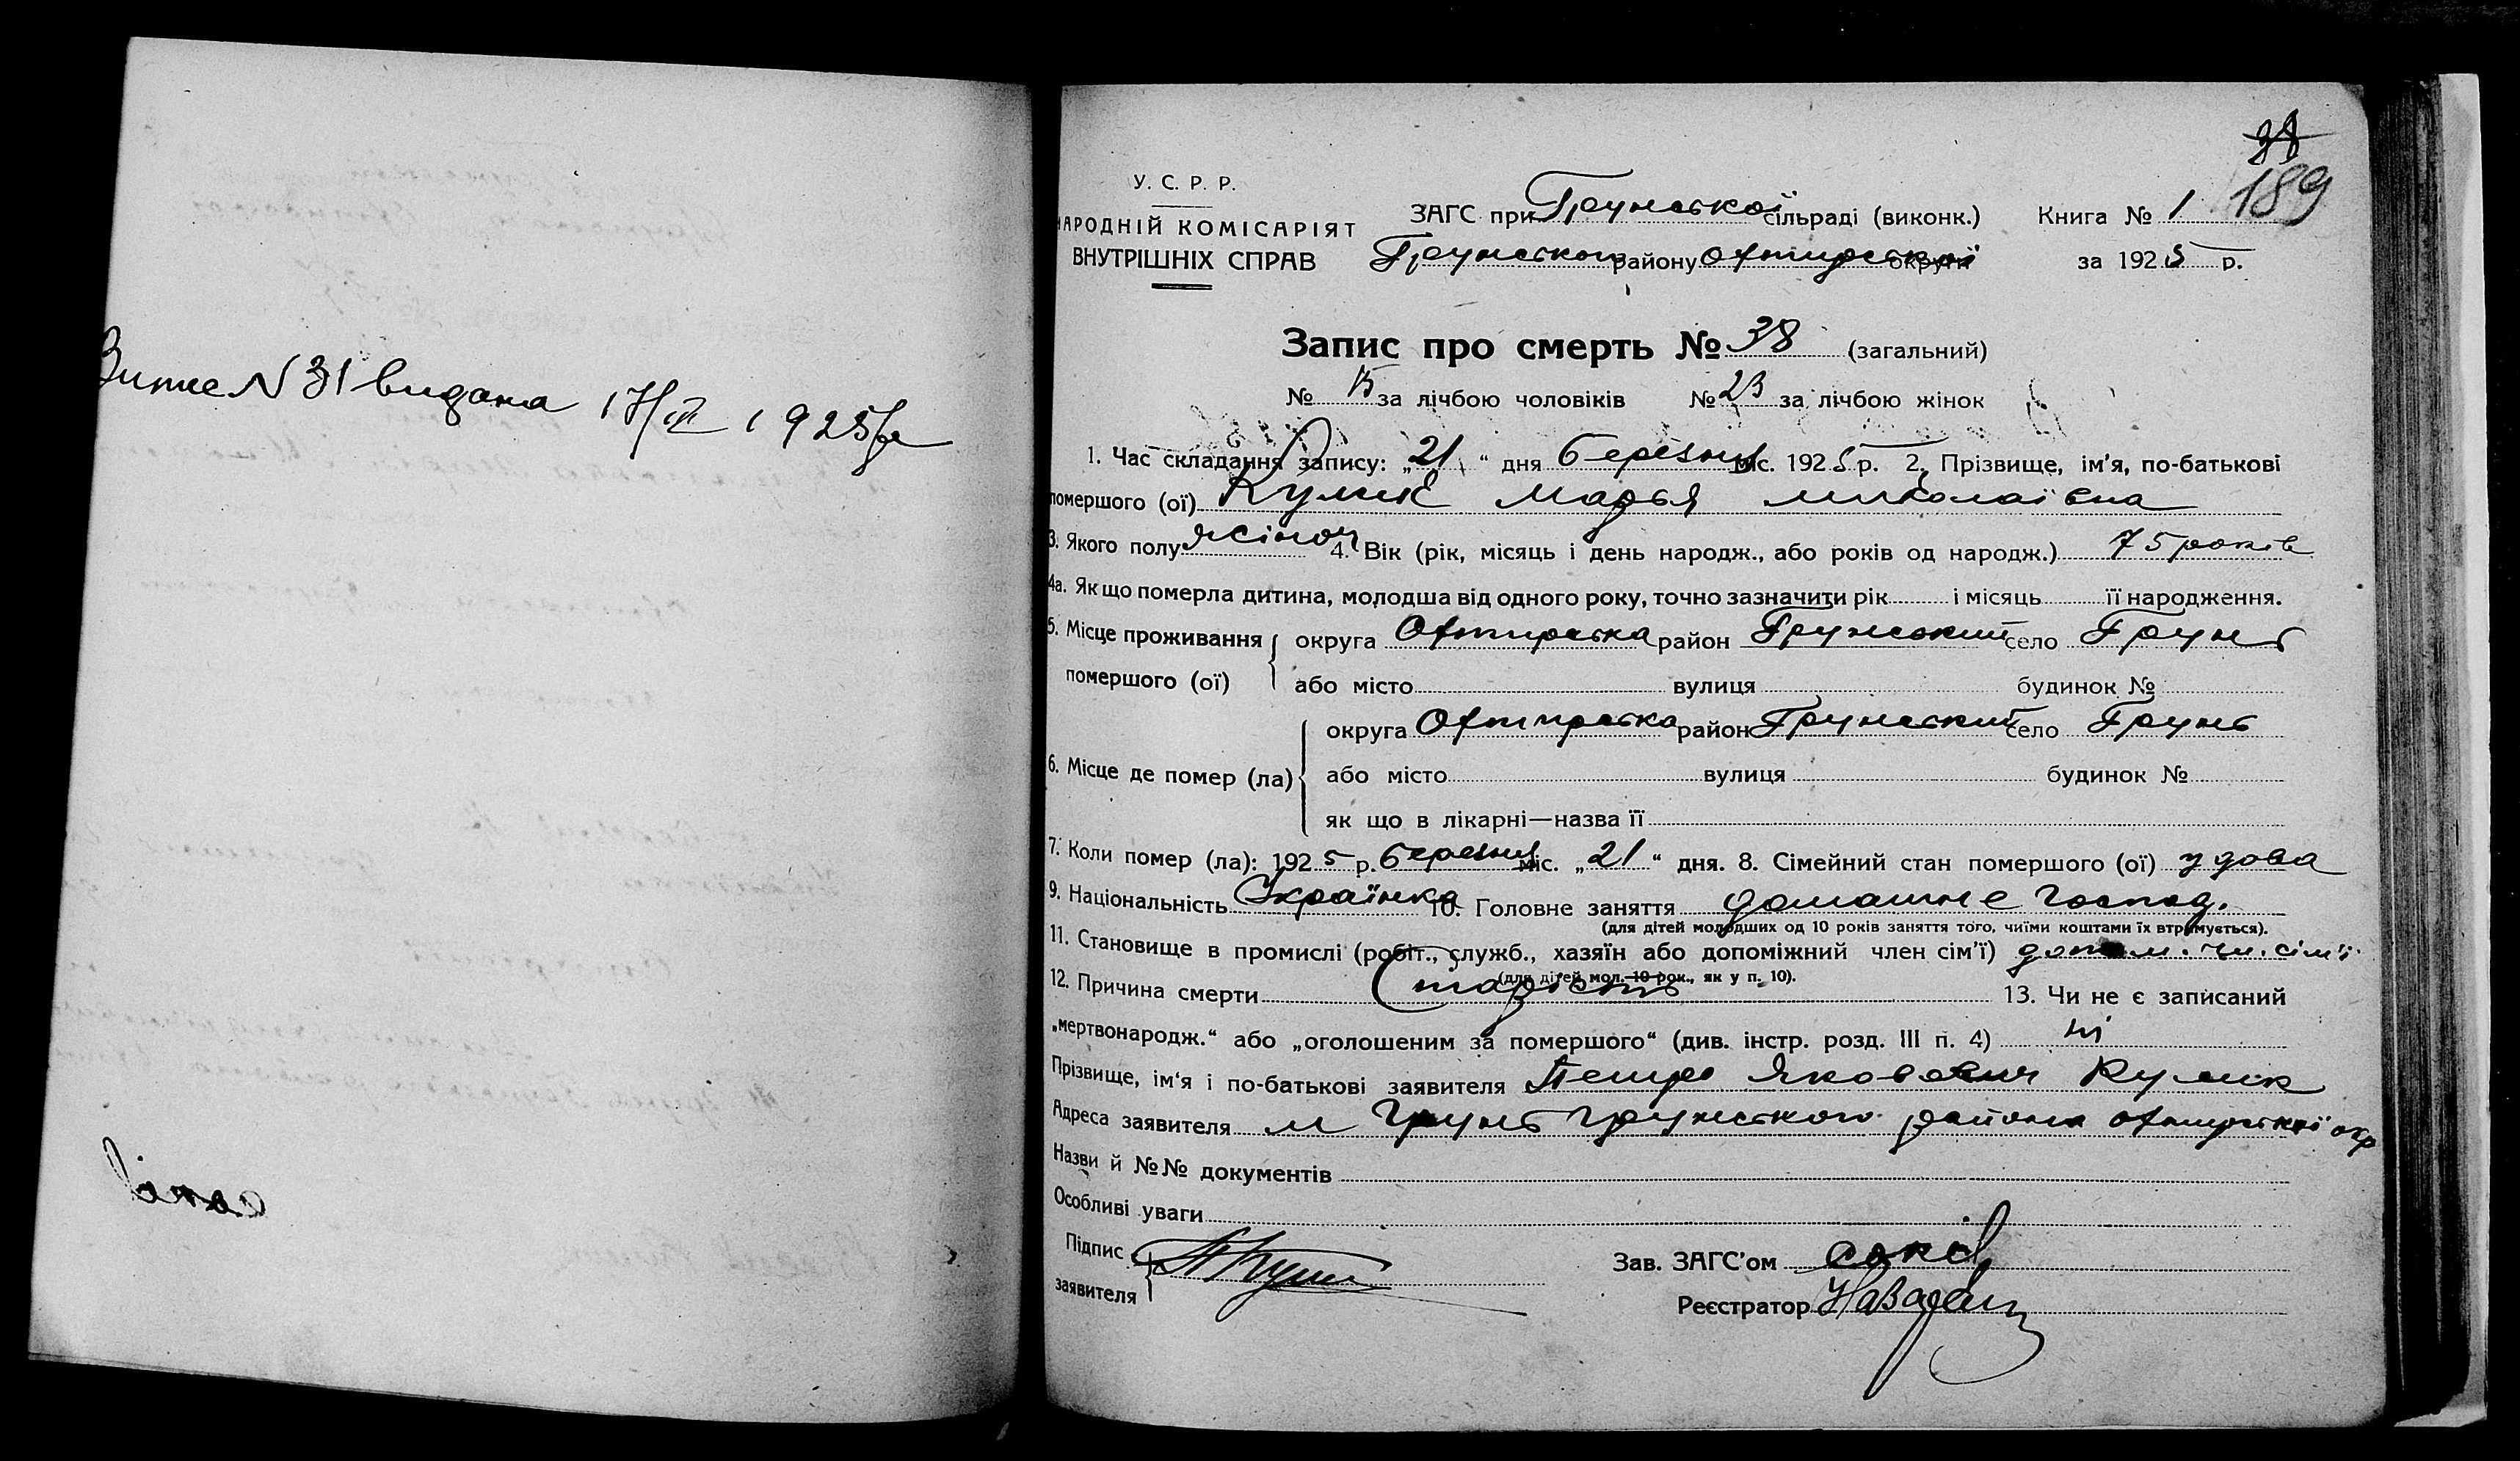 N 31 видана 17/III 1925 р
38
189
У. С. Р. Р.
НАРОДНІЙ КОМІСАРІЯТ
ВНУТРІШНІХ СПРАВ
ЗАГС при Грунської сільраді (виконк.)
Грунського району Охтирської округи
Книга № 1
за 1925 р.
Запис про смерть № 38 (загальний)
№ 15 за лічбою чоловіків № 23 за лічбою жінок
1. Час складання запису: „21“ дня березня міс. 1925 р. 2. Прізвище, ім'я, по-батькові
помершого (ої) Кулик Марья Миколаївна
3. Якого полу жіноч 4. Вік (рік, місяць і день народж., або років од народж.) 75 років
4а. Як що померла дитина, молодша від одного року, точно зазначити рік і місяць її народження.
5. Місце проживання помершого (ої) округа Охтирська район Грунський село Грунь
або місто вулиця будинок №
6. Місце де помер (ла) округа Охтирська район Грунський село Грунь
або місто вулиця будинок №
як що в лікарні—назва її
7. Коли помер (ла): 1925 р. березня міс. „21“ дня. 8. Сімейний стан помершого (ої) удова
9. Національність Українка 10. Головне заняття домашне господ.
(для дітей молодших од 10 років заняття того, чиїми коштами їх втримується).
11. Становище в промислі (робіт., служб., хазяїн або допоміжний член сім'ї) допом. чл. сім'ї
(для дітей мол. 10 рок., як у п. 10).
12. Причина смерти старість 13. Чи не є записаний
„мертвонародж.“ або „оголошеним за помершого“ (див. інстр. розд. III п. 4) ні
Прізвище, ім'я і по-батькові заявителя Петро Якович Кулик
Адреса заявителя м Грунь Грунського района Охтирської окр
Назви й №№ документів
Особливі уваги
Підпис заявителя П Кулик
Зав. ЗАГС'ом
Реєстратор